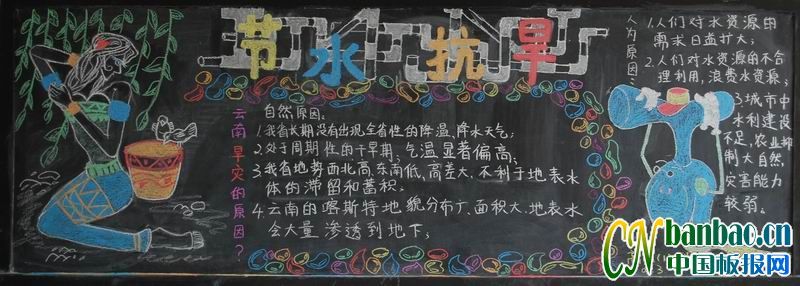 节水抗旱
云南旱灾的原因？
自然原因：
1.我省长期没有出现全省性的降温、降水天气；
2.处于周期性的干旱期，气温显著偏高；
3.我省地势西北高、东南低、高差大、不利于地表水
体的滞留和蓄积。
4.云南的喀斯特地貌分布广、面积大、地表水
会大量渗透到地下；
人为原因：
1.人们对水资源的
需求日益扩大；
2.人们对水资源的不合
理利用，浪费水资源；
3.城市中
水利建设
不足，农业抑
制大自然
灾害能力
较弱。
CNbanbao.cn
中国板报网